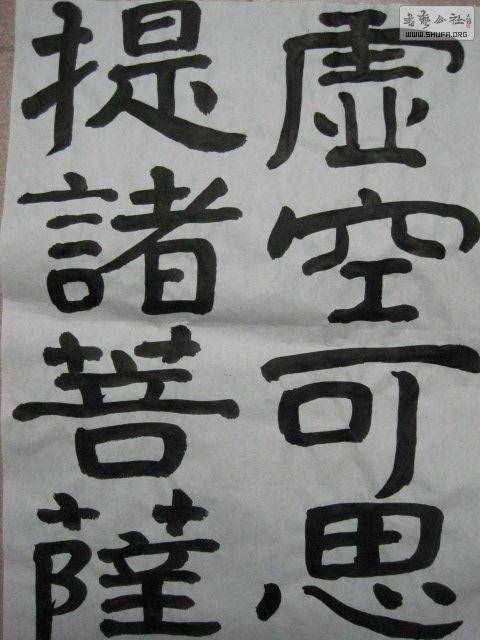 虛空可思
提諸菩薩
书艺公社
WWW.SHUFA.ORG